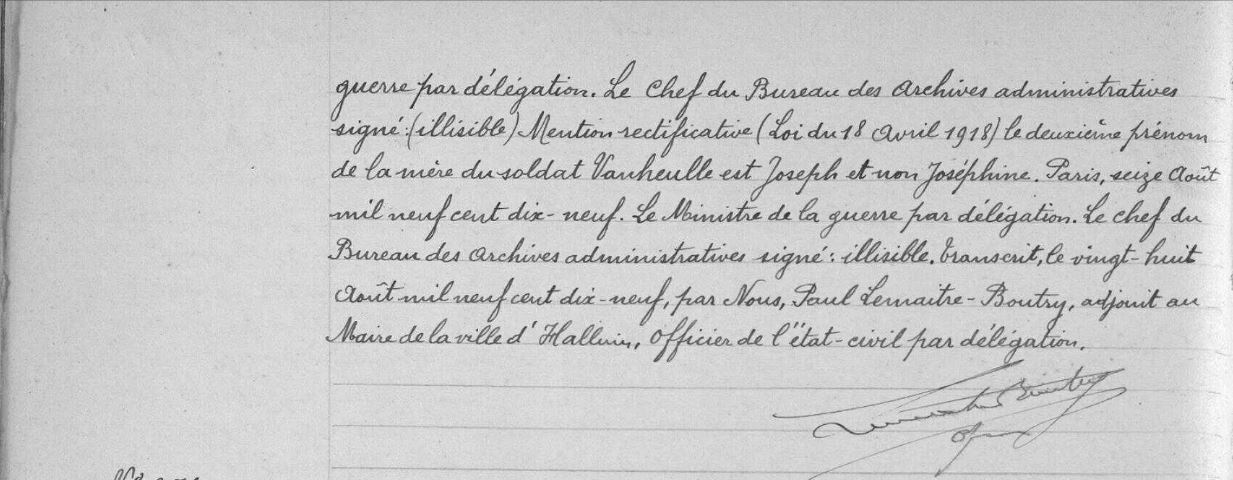 guerre par délégation. Le Chef du Bureau des Archives administratives
signé: (illisible) Mention rectificative (Loi du 18 Avril 1918) le deuxième prénom
de la mère du soldat Vanheulle est Joseph et non Joséphine. Paris, seize Août
mil neuf cent dix-neuf. Le Ministre de la guerre par délégation. Le chef du
Bureau des Archives administratives signé: illisible. Transcrit, le vingt-huit
Août mil neuf cent dix-neuf, par Nous, Paul Lemaitre-Boutry, adjoint au
Maire de la ville d'Halluin, Officier de l'état-civil par délégation.
Lemaitre Boutry